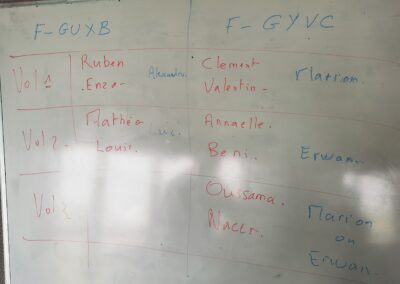 F-GUXB F-GYVC
Vol 1 Ruben Clement
Enzo- Alexandre Valentin- Marion.
Vol 2- Mathéo Annaelle.
Louis. Beni. Erwan.
Vol Oussama.
Nacer. Marion
ou
Erwan.